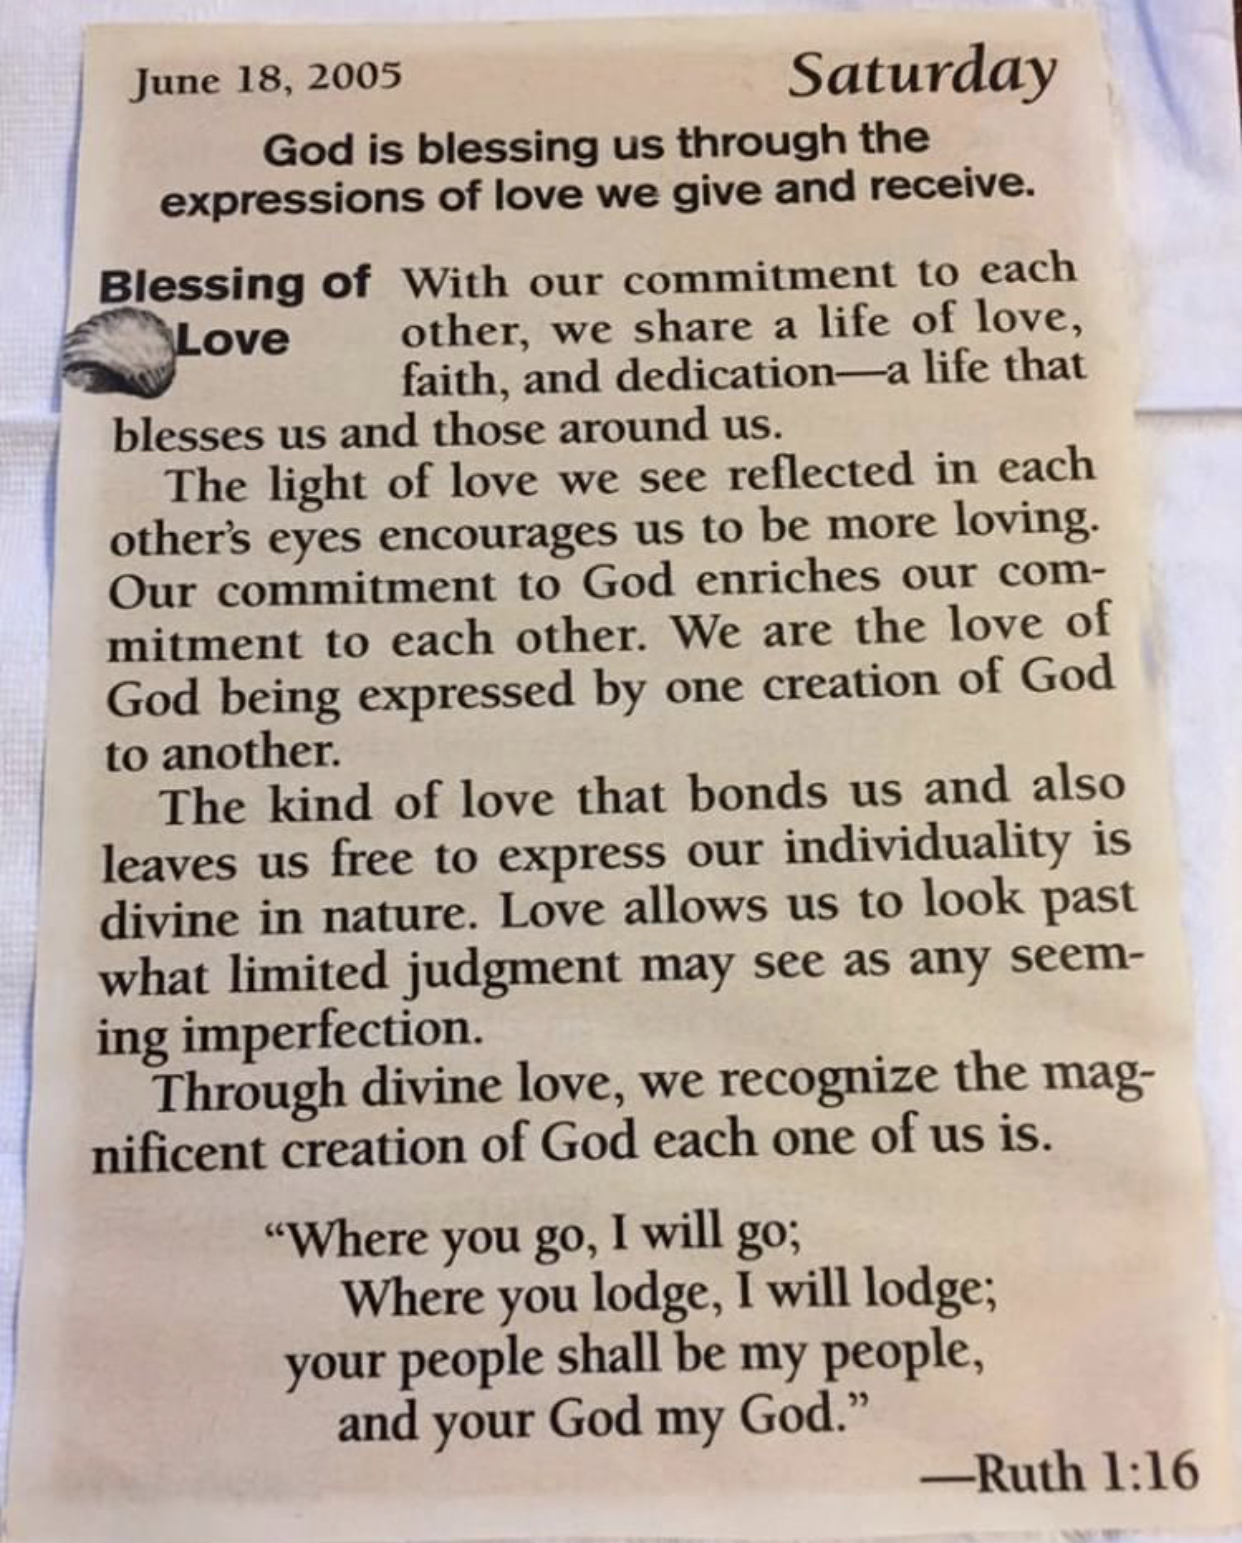 June 18, 2005 Saturday
God is blessing us through the
expressions of love we give and receive.
Blessing of
Love
With our commitment to each
other, we share a life of love,
faith, and dedication—a life that
blesses us and those around us.
The light of love we see reflected in each
other's eyes encourages us to be more loving.
Our commitment to God enriches our com-
mitment to each other. We are the love of
God being expressed by one creation of God
to another.
The kind of love that bonds us and also
leaves us free to express our individuality is
divine in nature. Love allows us to look past
what limited judgment may see as any seem-
ing imperfection.
Through divine love, we recognize the mag-
nificent creation of God each one of us is.
“Where you go, I will go;
Where you lodge, I will lodge;
your people shall be my people,
and your God my God.”
—Ruth 1:16